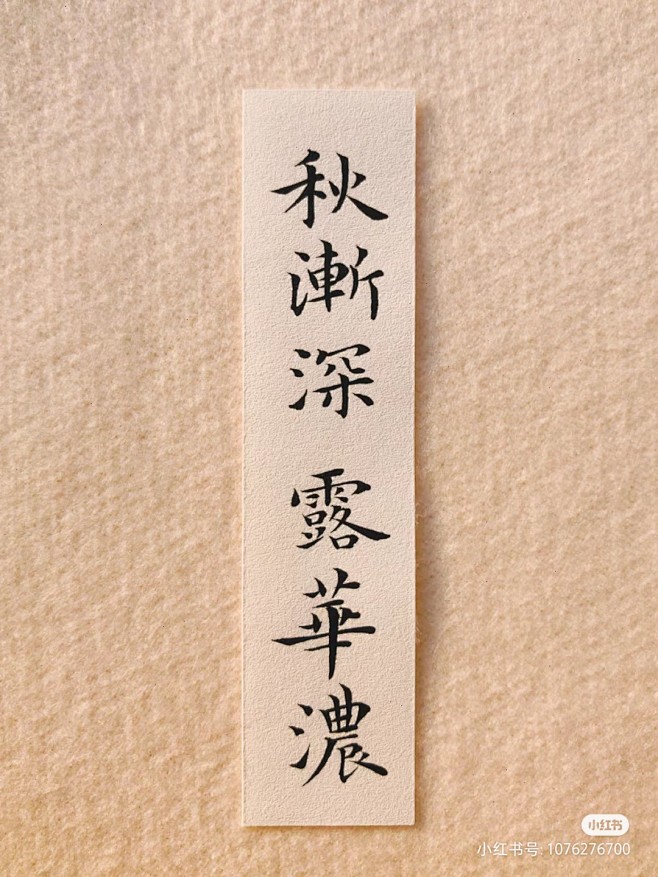 秋漸深 露華濃
小红书
小红书号: 1076276700